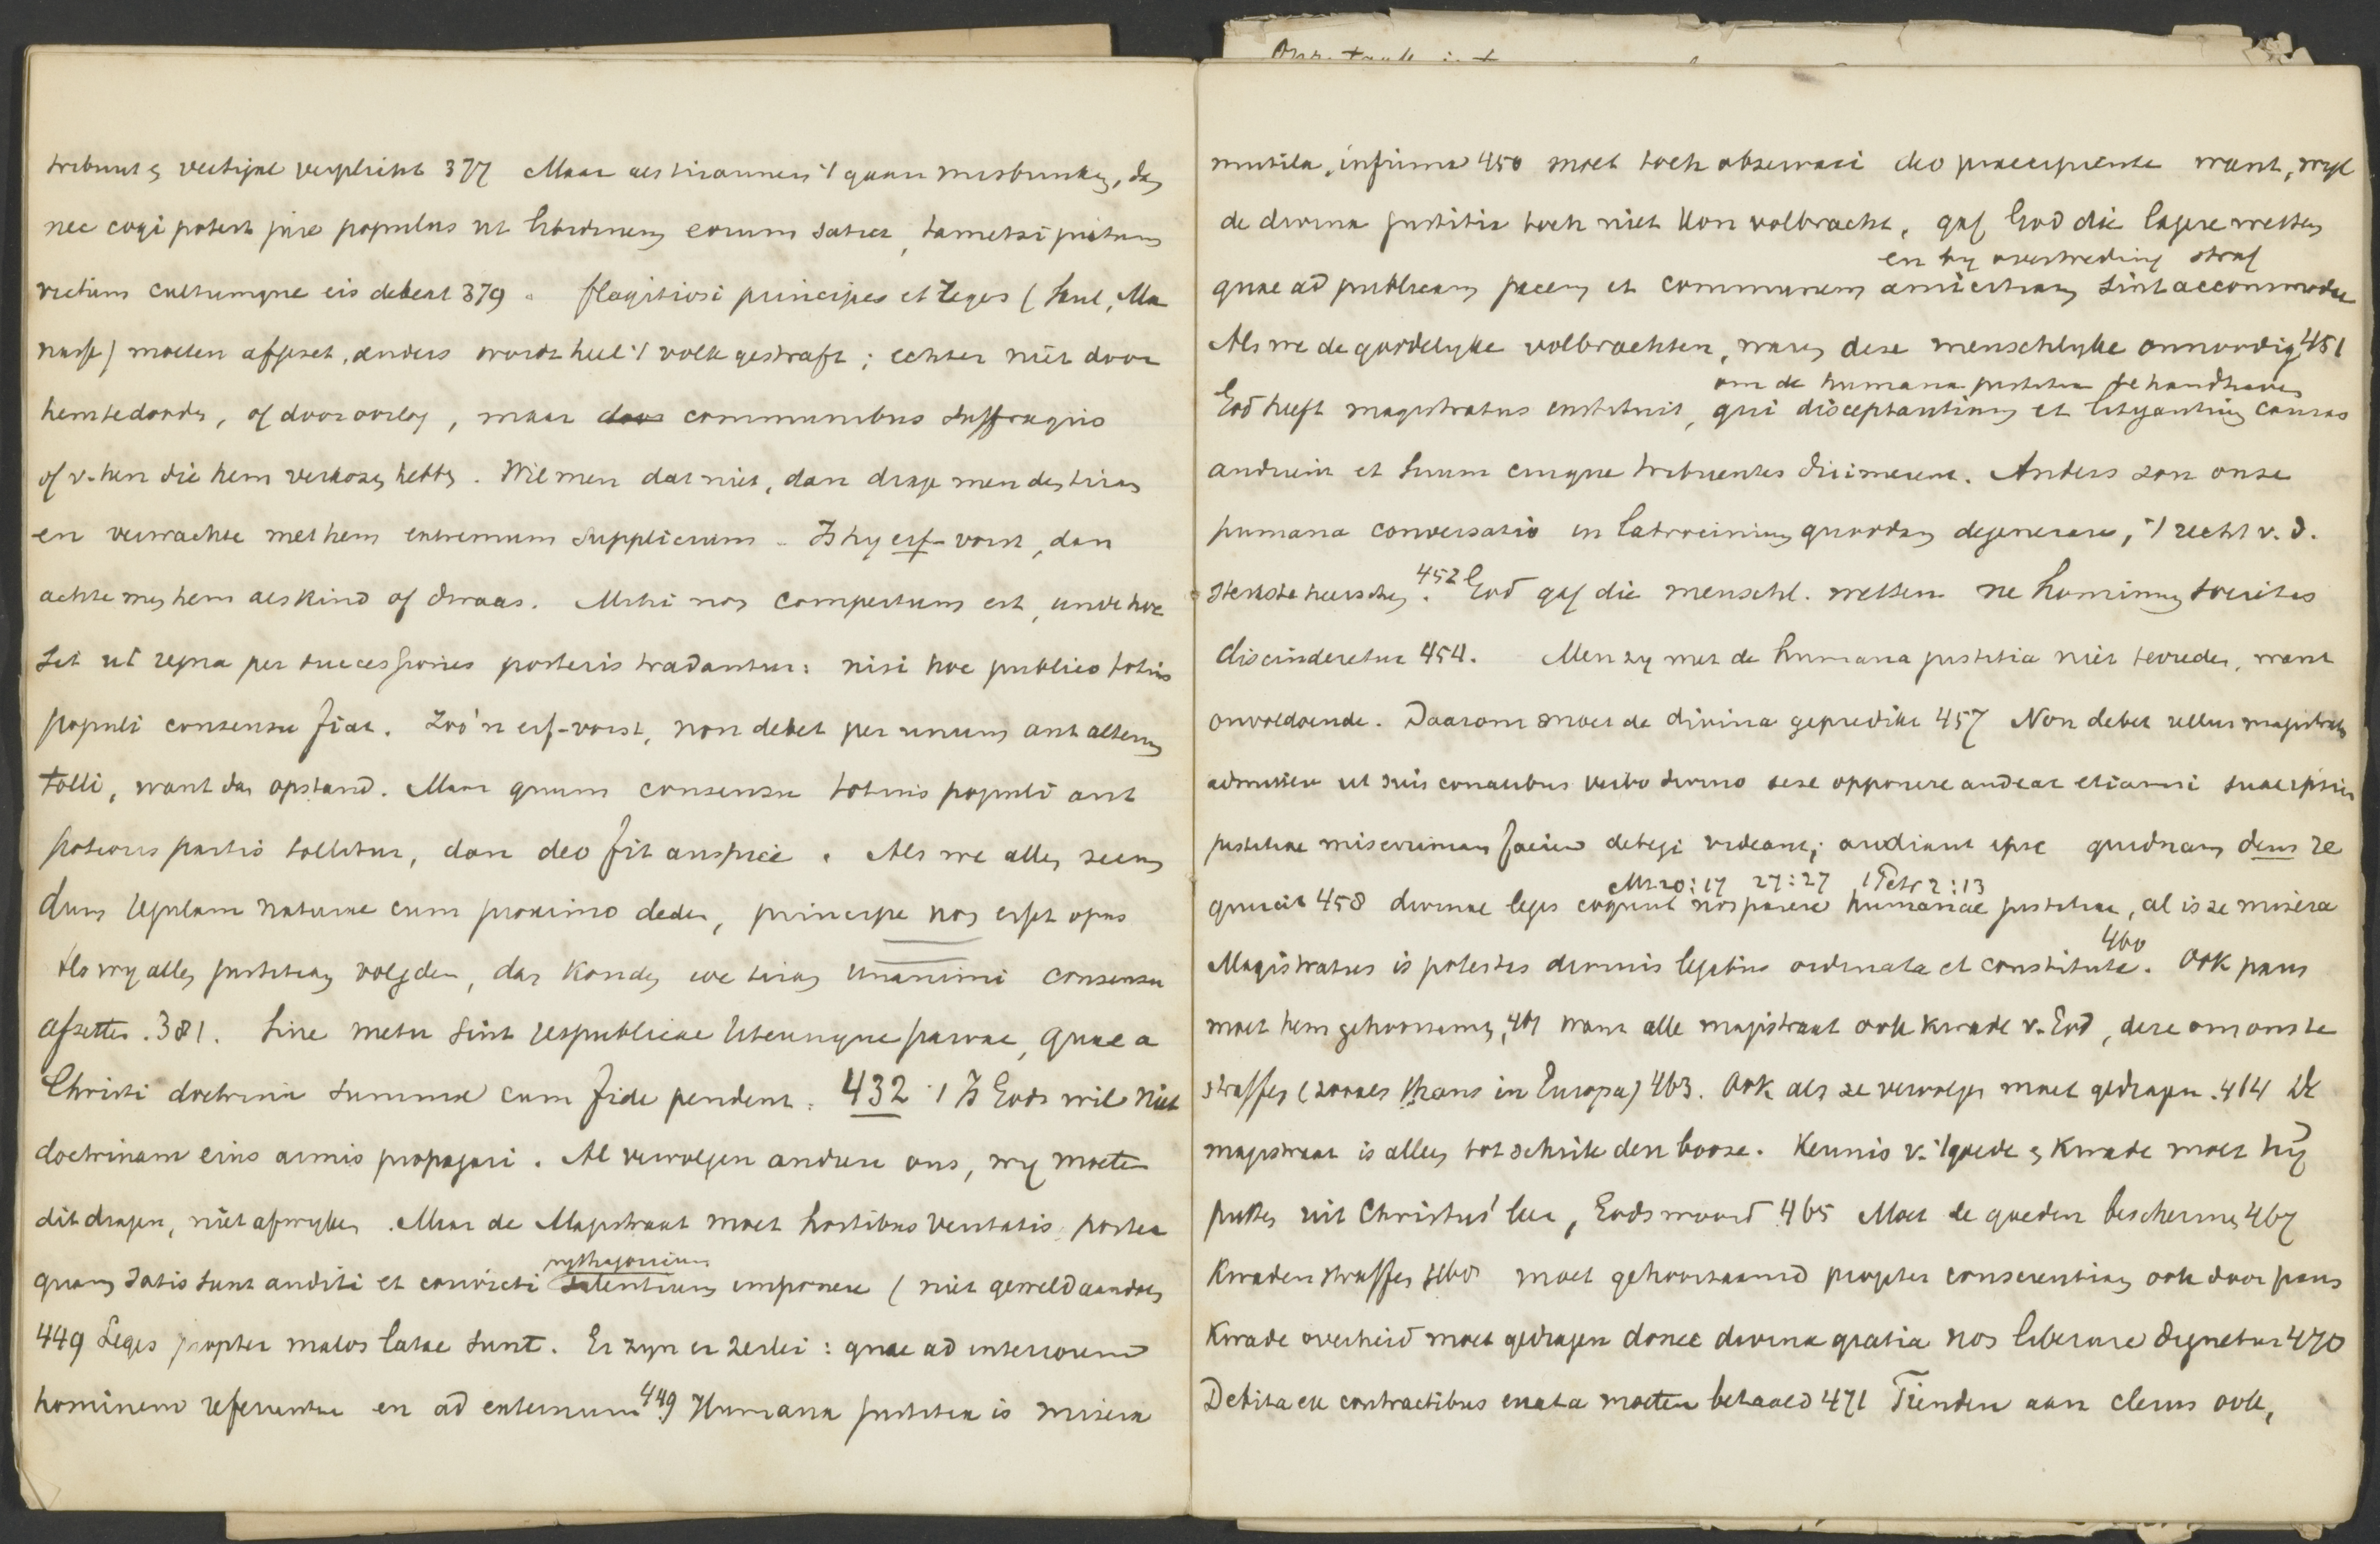 tribuut & vectigal verplicht 377 Maar als tirannen 't gaan misbruiken, dan
nec cogi potest jure populus ut libidinem eorum satiet, tametsi
victum cultumque eis debeat 379. flagitiosi principes et reges (Saul, Ma
nasse) moeten afgezet, anders wordt heel 't volk gestraft; echter niet door
hem te dooden, of door oorlog, maar door communibus suffragiis
of v. hen die hem verkozen hebben. Wil men dat niet, dan drage men den tiran
en verwachte met hem extremum supplicium. Is hy erf-vorst, dan
achte men hem als kind of dwaas. Mihi non compertum est, unde hoc
sit ut regna per successiones posteris tradantur: nisi hoc publico totius
populi consensu fiat. Zoo'n erf-vorst, non debet per unum aut alterum
tolli, want dan opstand. Maar quum consensu totius populi aut
potioris partis tollitur, dan deo fit auspice. Als we allen secun
dum regulam naturae cum proximo deden, principe non esset opus
Als wy allen justitiam volgden, dan konden we tiran unanimi consensu
afzetten. 381. Sine metu sint respublicae utcunque parvae, quae a
Christi doctrina summa cum fide pendent. 432 't Is Gods wil niet
doctrinam eius armis propagari. Al vervolgen andere ons, wy moeten
dit dragen, niet afwyken. Maar de Magistraat moet hostibus veritatis postea
pythagoricum
quam satis sunt auditi et convicti silentium imponere (niet geweld aandoen
449 Leges propter malos latae sunt. Er zyn er 2erlei: quae ad interiorem
hominem referuntur en ad externum 449 Humana justitia is misera
mutila, infirma 450 moet toch observari deo praecipiente want, wyl
de divina justitia toch niet kon volbracht, gaf God die lagere wetten
en by overtreding straf
quae ad publicam pacem et communem amicitiam sint accommodae
Als we de goddelyke volbrachten, waren deze menschlyke onnoodig 451
om de humana justitia te handhaven
God heeft magistratus instituit, qui disceptantium et litigantium causas
audirent et suum cuique tribuentes dirimerent. Anders zou onze
humana conversatio in latrocinium quoddam degenerare, 't recht v. d.
sterkste heerschen. 452 God gaf die menschl. wetten ne hominum societas
discinderetur 454. Men zy met de humana justitia niet tevreden, want
onvoldoende. Daarom moet de divina gepredikt 457 Non debet ullus magistratus
admittere ut suis conatibus verbo divino sese opponere audeat etiamsi suae ipsius
justitiae miserrimam faciem detegi videant; audiant ipse quidnam deus re
Mt 20:17 27:27 1 Petr 2:13
quirat 458 divinae leges cogunt nos parere humanae justitiae, al is ze misera
Magistratus is potestas divinis legibus ordinata et constituta. 460 Ook paus
moet hem gehoorzamen, 461 want alle magistraat ook kwade v. God, deze om ons te
straffen (zooals thans in Europa) 463. Ook als ze vervolgen moet gedragen. 464 De
magistraat is alleen tot schrik den booze. Kennis v. 't goede & kwade moet hy
putten uit Christus' leer, Gods woord 465 Moet de goeden beschermen 467
Kwaden straffen 468 moet gehoorzaamd propter conscientiam ook door paus
Kwade overheid moet gedragen donec divina gratia nos liberare dignetur 470
Debita ex contractibus enata moeten betaald 471 Tienden aan clerus ook,